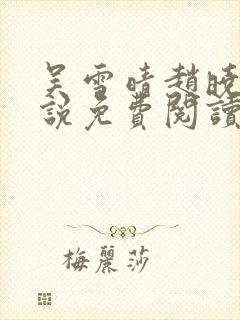 吴雪晴趙曉
說免費閱讀
梅麗莎